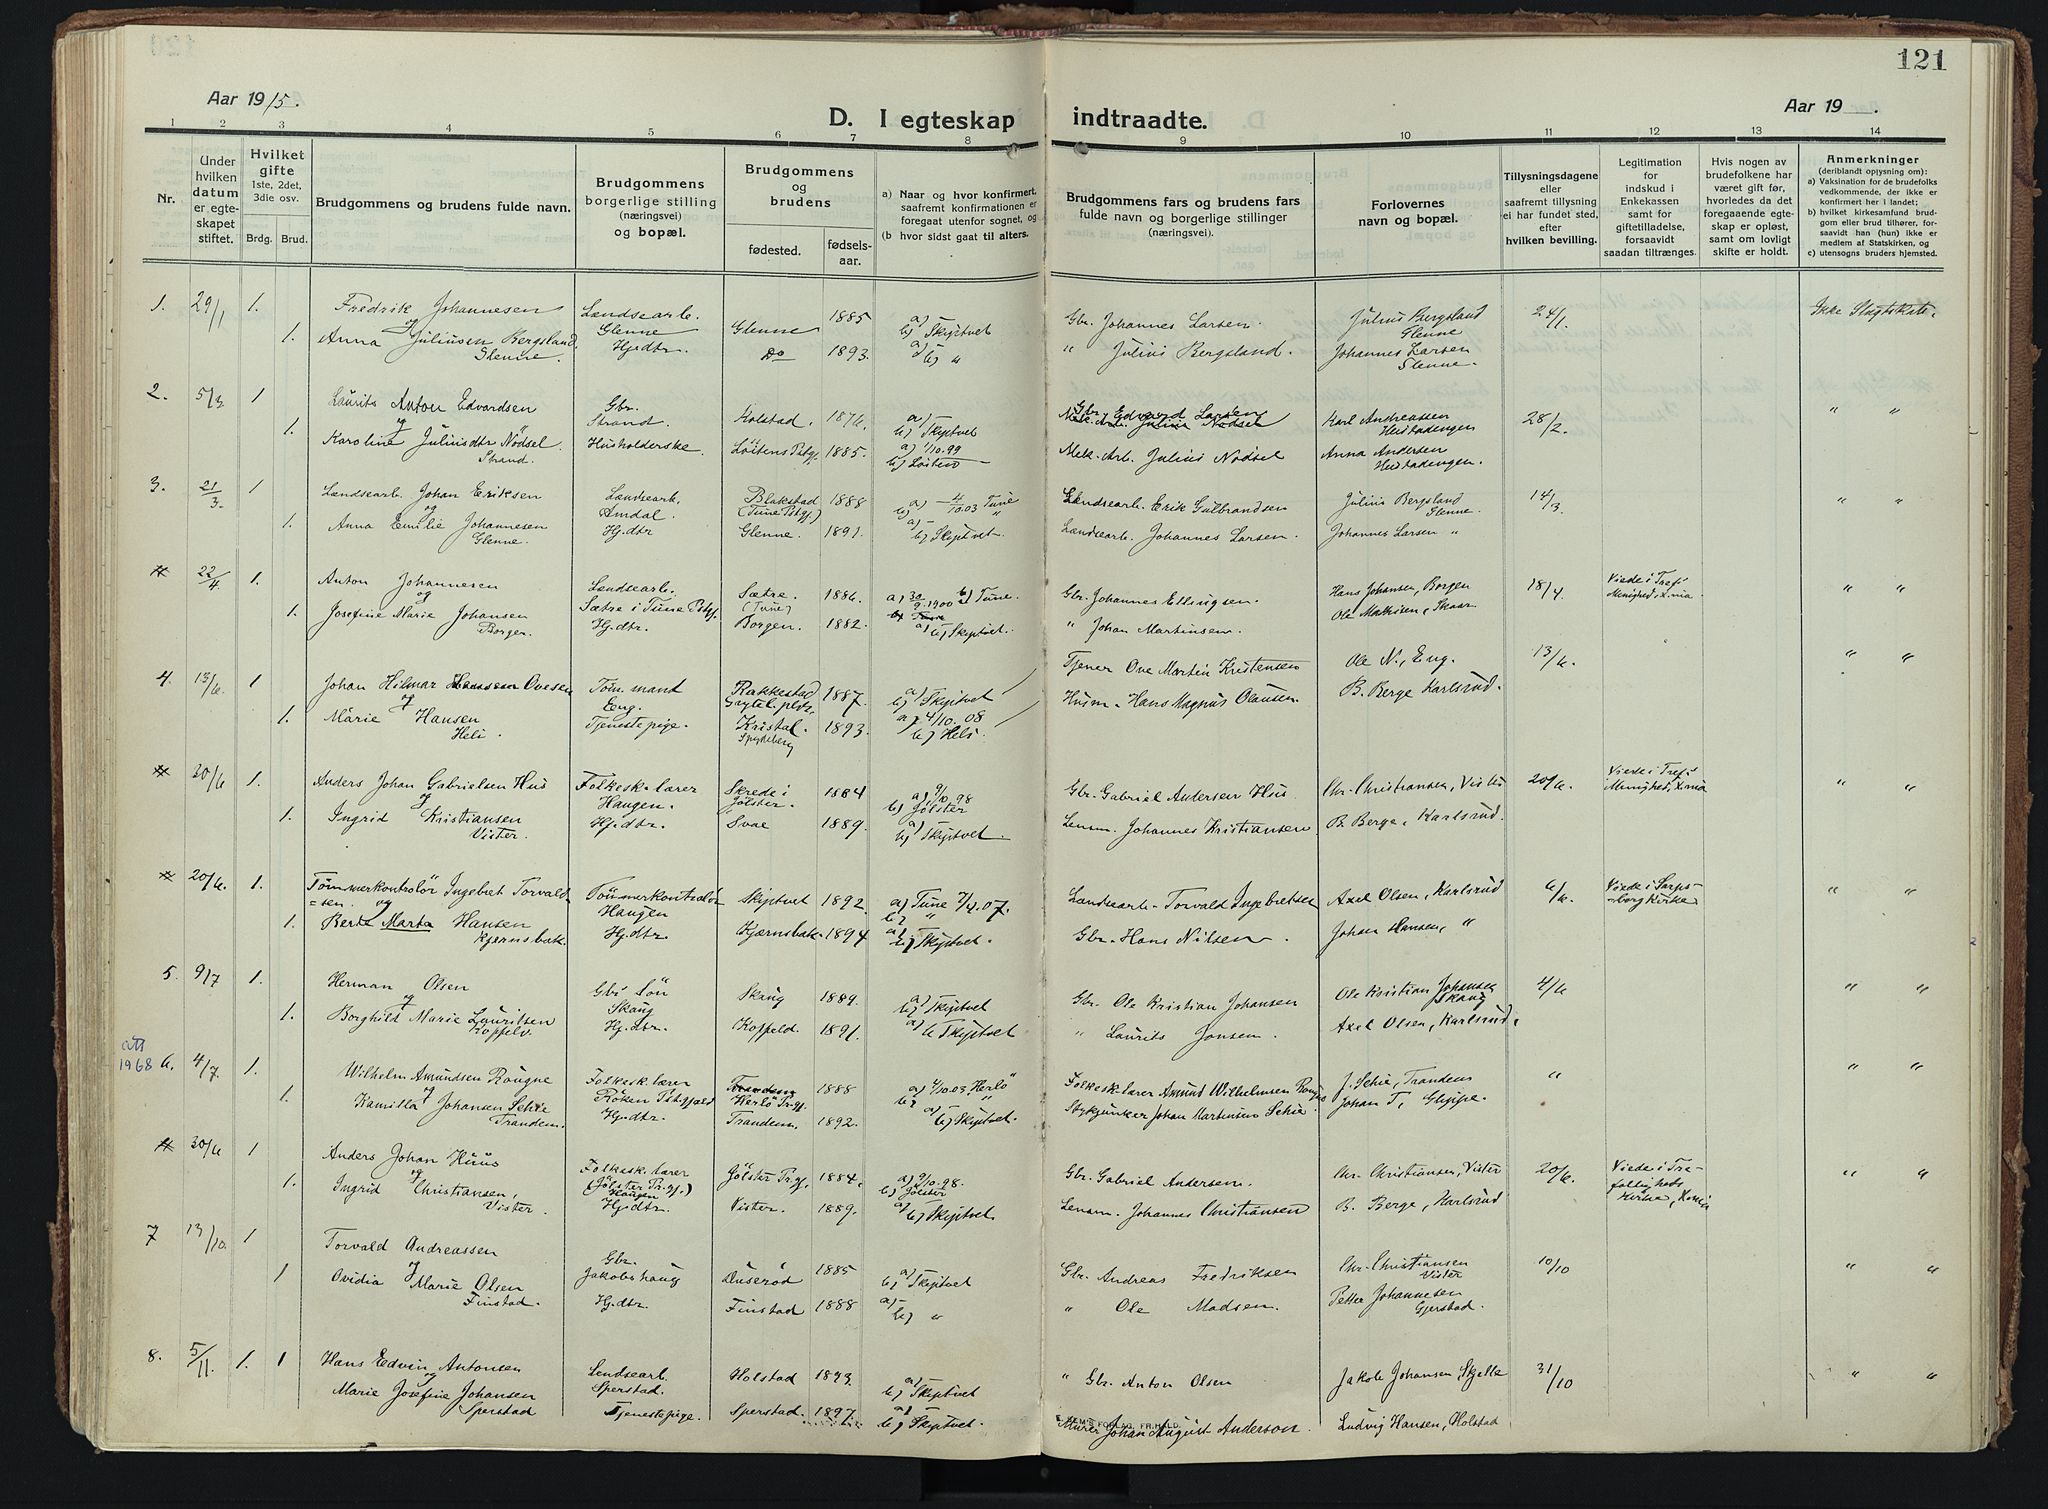 121
Aar 1915.
D. I egteskap indtraadte.
Aar 19
1 2 3 4 5 6 7 8 9 10 11 12 13 14
Nr.
Under hvilken datum er egte-skapet stiftet.
Hvilket gifte 1ste, 2det, 3die osv.
Brdg. Brud.
Brudgommens og brudens fulde navn.
Brudgommens borgerlige stilling (næringsvei) og bopæl.
Brudgommens og brudens
fødested. fødsels-aar.
a) Naar og hvor konfirmert, saafremt konfirmationen er foregaat utenfor sognet, og
(b hvor sidst gaat til alters.
Brudgommens fars og brudens fars fulde navn og borgerlige stillinger (næringsvei).
Forlovernes navn og bopæl.
Tillysningsdagene eller saafremt tillysning ei har fundet sted, efter hvilken bevilling.
Legitimation for indskud i Enkekassen samt for giftetilladelse, forsaavidt saadan tiltrænges.
Hvis nogen av brudefolkene har været gift før, hvorledes da det foregaaende egte-skap er opløst, samt om lovligt skifte er holdt.
Anmerkninger (deriblandt opjysning om):
a) Vaksination for de brudefolks vedkommende, der ikke er konfirmert her i landet;
b) hvilket kirkesamfund brud-gom eller brud tilhører, for-saavidt han (hun) ikke er medlem af Statskirken, og
c) utensogns bruders hjemsted.
1. 29/1 1. Fredrik Johannesen Landsearb. Glenne Glenne 1885 a) b) Skiptvet Gbr. Johannes Larsen. Julius Bergsland Glenne 24/1.
og
1. Anna Juliusen Bergsland Glenne. Hj.dtr. Do 1893. a) b) " " Julius Bergsland. Johannes Larsen Glenne.
2. 5/3 1 Laurits Anton Edvardsen Gbr. Strand. Holstad. 1876. a) b) Skiptvet Gbr. Edvard Larsen Karl Andreassen 28/2. " "
og
1. Karoline Juliusdtr Nødsel Strand. Husholderske. Løitens Pstgj. 1885. a) 1/10.99 b) Løiten Mek. Arb. Julius Nødsel Anna Andersen
3. 21/3. 1 Landsearb. Johan Eriksen Landsearb. Amdal. Blakstad (Tune Pstgj.) 1888 a) 4/10.03 Tune b) " Landsearb. Erik Gulbrandsen Julius Bergsland Glenne. 14/3. " "
og
1. Anna Emilie Johannesen Glenne. Hj.dtr Glenne. 1891. a) b) Skiptvet. Landsearb. Johannes Larsen. Johannes Larsen "
22/4. 1. Anton Johannesen Landsearb. Sætre i Tune Pstgj. Sætre. (Tune) 1886. a) 30/9.1900 b) Tune. Gbr. Johannes Ellingsen. Hans Johansen, Borgen 18/4. Viede i Tref. Menighed i X.nia " "
og
1. Josefine Marie Johansen Borgen. Hj.dtr. Borgen. 1882. a) b) Skiptvet. " Johan Martinsen. Ole Mathisen, Skaar
4. 13/6. 1 Johan Hilmar Ovesen Tøm.mand Eng. Rakkestad 1887. a) b) Skiptvet Tjener Ove Martin Kristensen Ole N., Eng. 13/6. " "
og
1. Marie Hansen Heli. Tjenestepige. Kristal. Spydeberg 1893. a) 4/10.08 b) Heli. Husm. Hans Magnus Olausen B. Berge Karlsrud.
30/6 1. Anders Johan Gabrielsen Hus Folkesk.lærer Haugen. Skrede i Jølster. 1884 a) 9/10.98 b) Jølster Gbr. Gabriel Andersen Hus Chr. Christiansen, Vister 20/6. Viede i Tref. Menighed, X.nia " "
og
1. Ingrid Kristiansen Vister. Hj.dtr. Svae 1889. a) b) Skiptvet Lensm. Johannes Kristiansen B. Berge, Karlsrud.
20/6. 1. Tømmerkontrolør Ingebret Torvald=sen. og Tømmerkontrolør Haugen Skiptvet 1892. a) Tune 7/4.07. b) " Landsearb. Torvald Ingebretsen Axel Olsen, Karlsrud 6/6. Viede i Sarps-borg Kirke " "
1. Berte Marta Hansen Kjærnsbak. Hj.dtr. Kjærnsbak. 1894 a) b) Skiptvet. Gbr. Hans Nilsen. Johan Hansen, "
5. 9/7 1. Herman Olsen Gbr. Søn Skaug Skaug 1889. a) b) Skiptvet Gbr. Ole Kristian Johansen Ole Kristian Johansen Skaug 4/6 " "
og
1. Borghild Marie Lauritsen Hj.dtr. Koppeld. 1891. a) b) Skiptvet " Laurits Jonsen. Axel Olsen, Karlsrud.
att 1968 6. 4/7 1. Wilhelm Amundsen Rougne Folkesk.lærer Røken Pstgjæld Herlø Pr.gj. 1888 a) 4/10.03 Herlø b) " Folkesk.lærer Amund Wilhelmsen J. Schie, Trandem " " "
og
1. Kamilla Johansen Schie Trandem. Hj.dtr. Trandem. 1892. a) b) Skiptvet. Stykjunker Johan Martinsen Schie. Johan T.,
30/6 1 Anders Johan Huus Folkesk.lærer (Jølster Pr.gj.) Haugen Jølster Pr.gj. 1884. a) 9/10.98. b) Jølster Gbr. Gabriel Andersen. Chr. Christiansen, Vister 20/6. Viede i Tre-foldigheds Kirke, " "
og
1. Ingrid Christiansen, Vister. Hj.dtr. Vister. 1889. a) b) Skiptvet. Lensm. Johannes Christiansen B. Berge, Karlsrud
7 13/10. 1 Torvald Andreassen Gbr. Jakobshaug Duserød 1885 a) b) Skiptvet Gbr. Andreas Fredriksen Chr. Christiansen Vister 10/10 " "
og
1 Ovidia Marie Olsen Finstad. Hj.dtr. Finstad 1888 a) b) " " Ole Madsen. Petter Johannesen Gjerstad.
8. 5/11. 1. 1 Hans Edvin Antonsen Landsearb. Sperstad. Holstad 1893. a) b) Skiptvet " Gbr. Anton Olsen Jakob Johansen, 31/10 " "
og
Marie Josefine Johansen Sperstad Tjenestepige. Sperstad. 1897. a) b) Skiptvet. Murer Johan August Anderson. Ludvig Hansen, Holstad